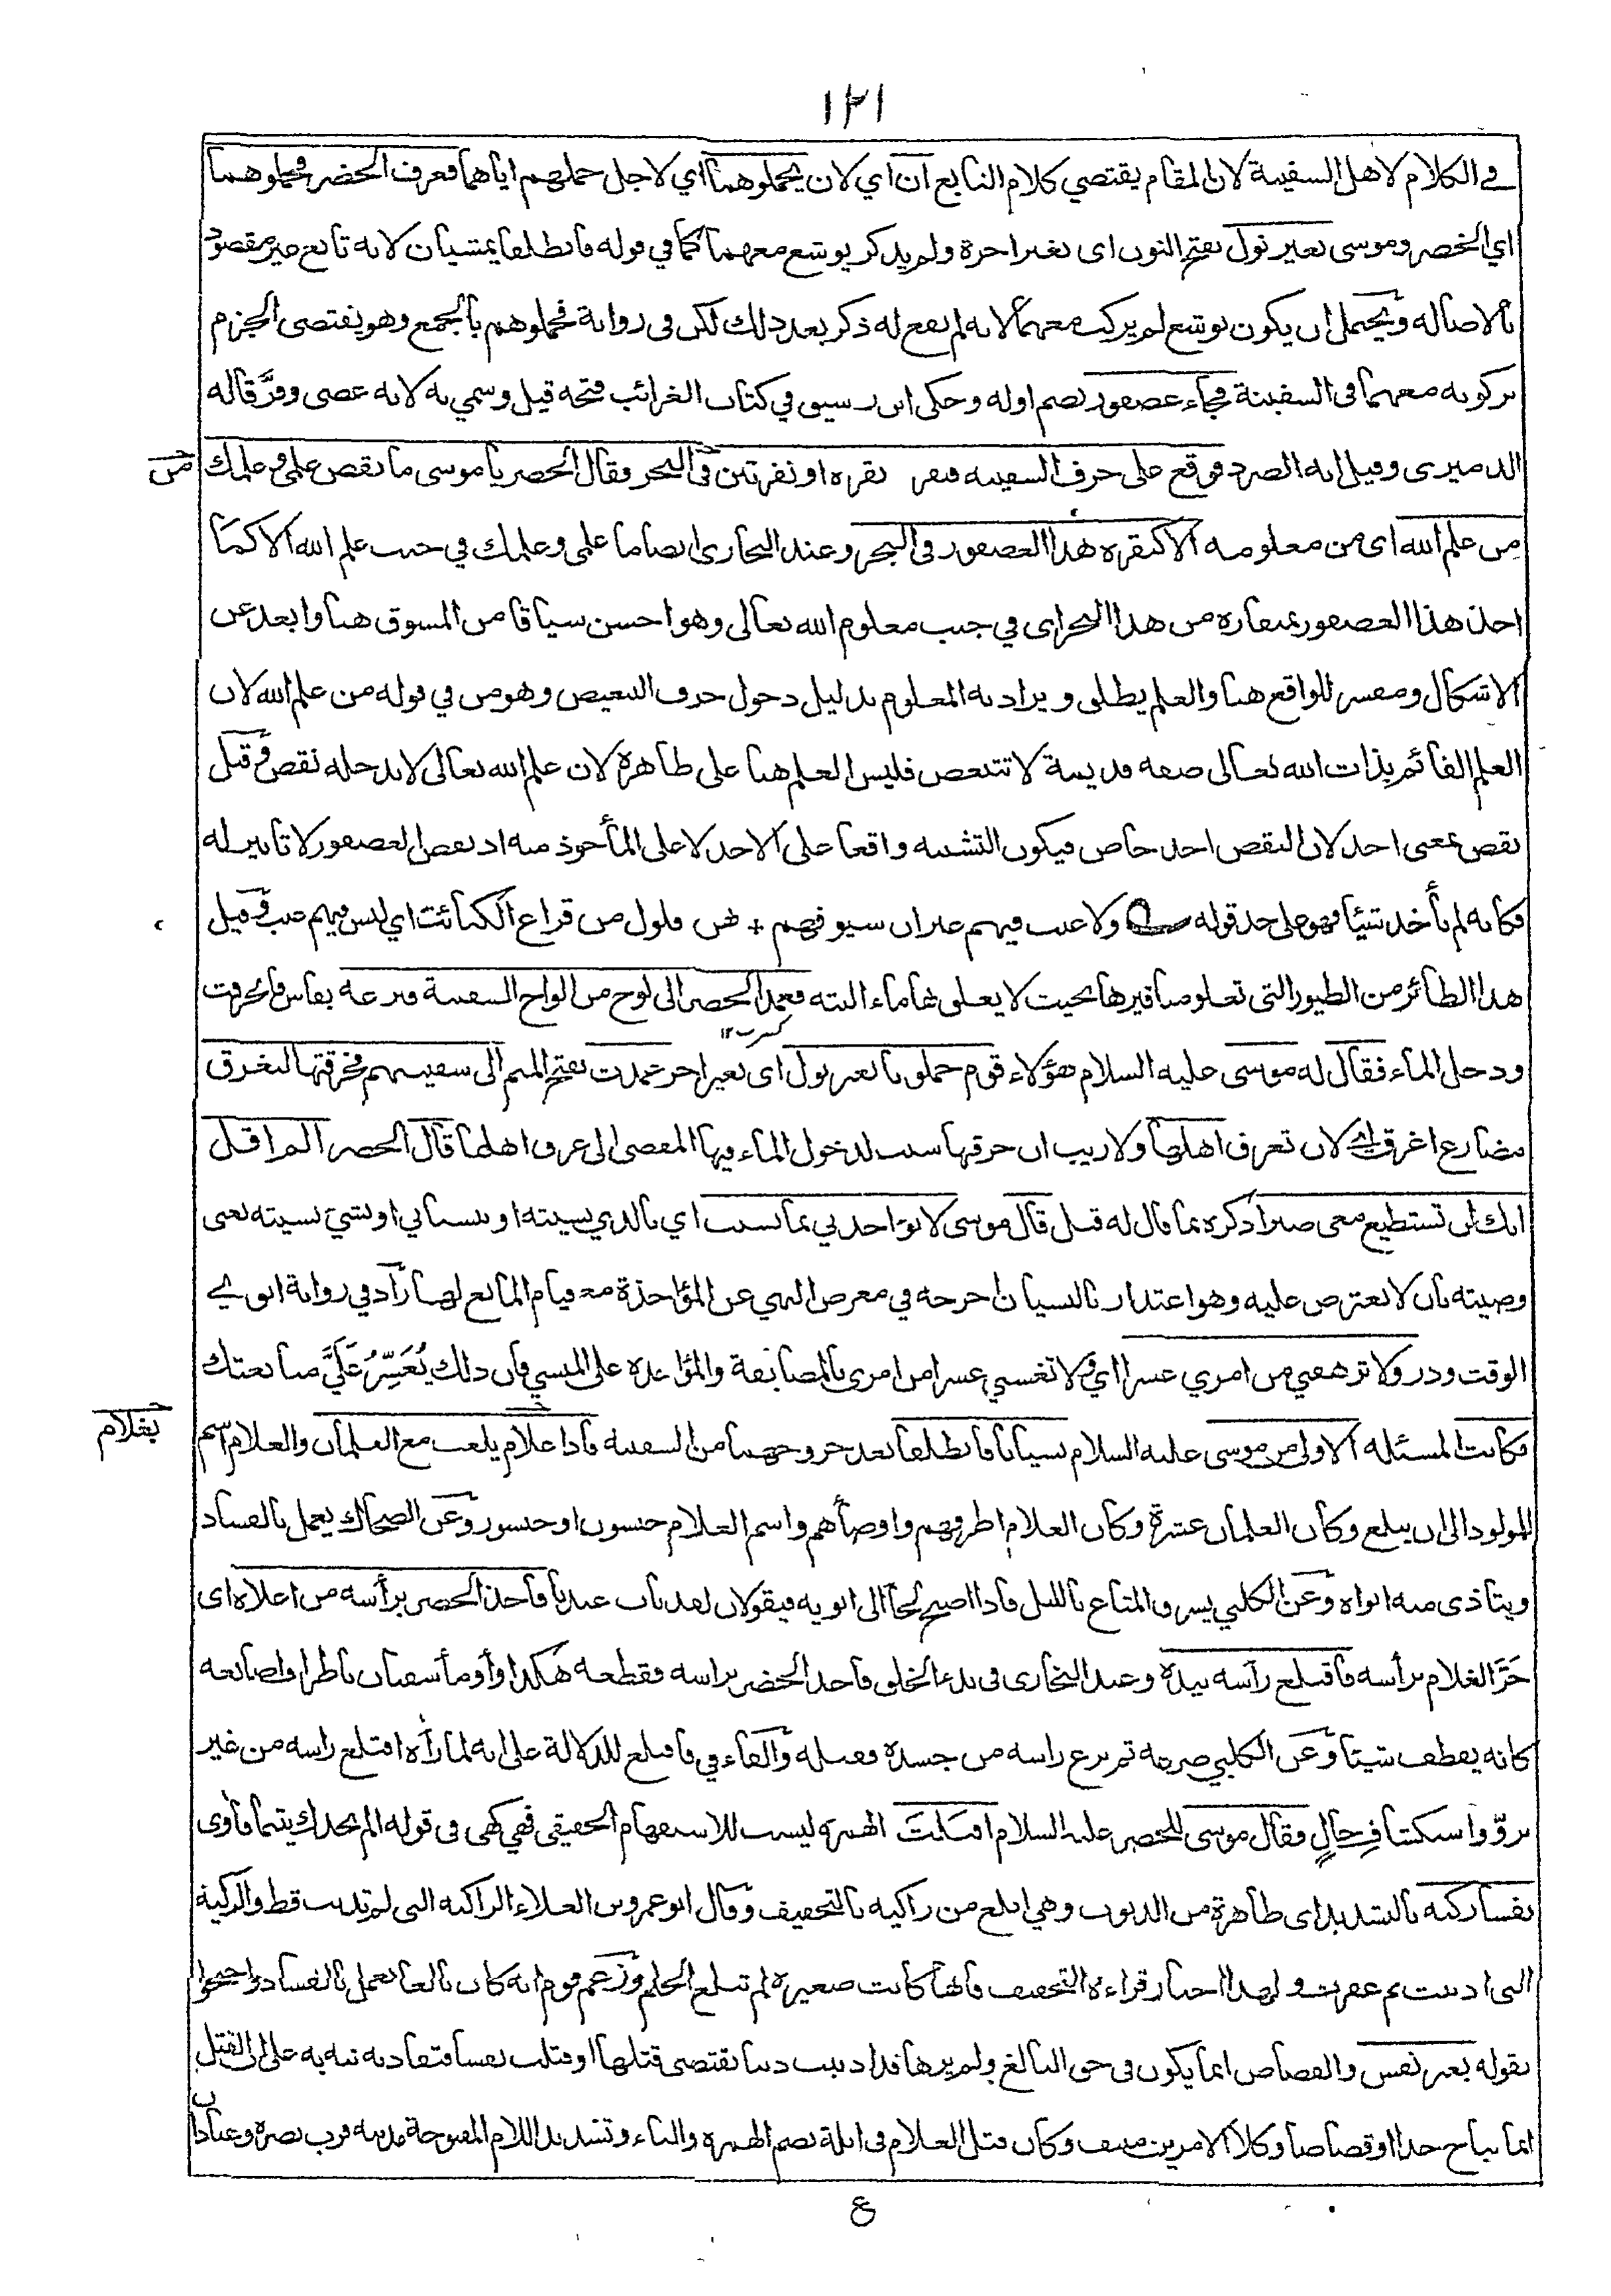 ١٢١
في الكلام لاهل السفينة لان المقام يقتضي كلام التابع ان اي لان يحملوهما اي لاجل حملهم اياهما فعرف الخضر فحملوهما
اي الخضر وموسى بغير نول بفتح النون اى بغير اجرة ولم يذكر يوشع معهما كما في قوله فانطلقا يمشيان لانه تابع غير مقصود
بالاصاله ويحتمل ان يكون يوشع لم يركب معهما لانه لم يقع له ذكر بعد ذلك لكن فى رواية فحملوهم بالجمع وهو يقتضى الجزم
بركوبه معهما فى السفينة فجاء عصفور بضم اوله وحكى ابن رسيق في كتاب الغرائب فتحه قيل وسمي به لانه عصى وفرَّ قاله
الدميرى وقيل انه الصرد فوقع على حرف السفينه فنقر نقره او نقرتين فى البحر وقال الخضر يا موسى ما نقص علمى وعلمك من
من علم الله اى من معلومه الا كنقره هذا العصفور فى البحر وعند البخارى ايضا ما علمى وعلمك في جنب علم الله الا كما
اخذ هذا العصفور بمنقاره من هذا البحر اى في جنب معلوم الله تعالى وهو احسن سياقا من المسوق هنا وابعد عن
الاشكال ومفسر للواقع هنا والعلم يطلق ويراد به المعلوم بدليل دخول حرف التبعيض وهو من في قوله من علم الله لان
العلم القائم بذات الله تعالى صفه قديمة لا تتبعض فليس العلم هنا على ظاهره لان علم الله تعالى لا يدخله نقص وقيل
نقص بمعنى اخذ لان النقص اخذ خاص فيكون التشبيه واقعا على الاخذ لا على المأخوذ منه اذ نقص العصفور لا تاثير له
فكانه لم يأخذ شيئا فهو على حد قوله ولا عيب فيهم غير ان سيوفهم + بهن فلول من قراع الكتائب اي ليس فيهم عيب وقيل
هذا الطائر من الطيور التى تعلو مناقيرها بحيث لا يعلق بها ماء البته فعمد الخضر الى لوح من الواح السفينة فنزعه بفاس فانخرقت
ودخل الماء فقال له موسى عليه السلام هؤلاء قوم حملونا بغير نول اى بغير اجر عمدت بفتح الميم الى سفينتهم فخرقتها لتغرق
مضارع اغرق اى لان تغرق اهلها ولا ريب ان خرقها سبب لدخول الماء فيها المفضى الى غرق اهلها قال الخضر الم اقل
انك لن تستطيع معى صبرا ذكره بما قال له قبل قال موسى لا تؤاخذني بما نسيت اي بالذي نسيته او بنسياني او بشئ نسيته يعنى
وصيته بان لا يعترض عليه وهو اعتذار بالنسيان اخرجه في معرض النهي عن المؤاخذة مع قيام المانع لها زاد في رواية ابوي
الوقت وذر ولا ترهقني من امري عسرا اي ولا تغشني عسرا من امرى بالمضايقة والمؤاخذه على المنسي فان ذلك يُعَسِّرُ عَلَيَّ متابعتك
فكانت المسئله الاولى من موسى عليه السلام نسيانا فانطلقا بعد خروجهما من السفينه فاذا غلام يلعب مع الغلمان والغلام اسم
بغلام
المولود الى ان يبلغ وكان الغلمان عشرة وكان الغلام اظرفهم واوضأهم واسم الغلام جيسون او جيسور وعن الضحاك يعمل بالفساد
ويتاذى منه ابواه وعن الكلبي يسرق المتاع بالليل فاذا اصبح لجأ الى ابويه فيقولان لقد بات عندنا فاخذ الخضر برأسه من اعلاه اى
جَرَّ الغلام برأسه فاقتلع رأسه بيده وعند البخارى فى بدء الخلق فاخذ الخضر براسه فقطعه هكذا واومأ سفيان باطراف اصابعه
كانه يقطف شيئا وعن الكلبي صرعه ثم نزع راسه من جسده فقتله والفاء في فاقتلع للدلالة على انه لما رأه اقتلع راسه من غير
تروٍّ واستكشاف حالٍ فقال موسى للخضر عليه السلام اقتلت الهمزه ليست للاستفهام الحقيقى فهي كهى فى قوله الم يجدك يتيما فاوى
نفسا زكيه بالتشديد اى طاهرة من الذنوب وهي ابلغ من زاكيه بالتخفيف وقال ابو عمرو بن العلاء الزاكيه التى لم تذنب قط والزكية
التى اذنبت ثم غفرت ولهذا اختار قراءه التخفيف فانها كانت صغيره لم تبلغ الحلم وزعم قوم انه كان بالغا يعمل بالفساد واحتجوا
بقوله بغير نفس والقصاص انما يكون فى حق البالغ ولم يرها قد اذنبت ذنبا يقتضى قتلها او قتلت نفسا فتقاد به نبه به على ان القتل
انما يباح حدا او قصاصا وكلا الامرين منتف وكان قتل الغلام فى ابلة بضم الهمزه والباء وتشديد اللام المفتوحة مدينه قرب بصره وعبادان